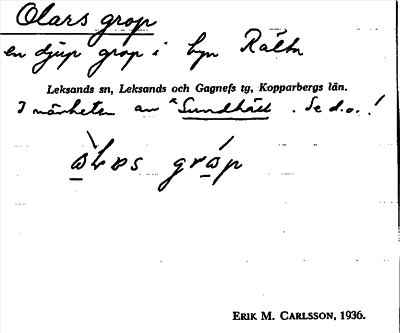 Olars grop
en djup grop i byn Rältn
Leksands sn, Leksands och Gagnefs tg, Kopparbergs län.
I närheten av ˣSundhäll. Se d.o.!
gråp
ERIK M. CARLSSON, 1936.